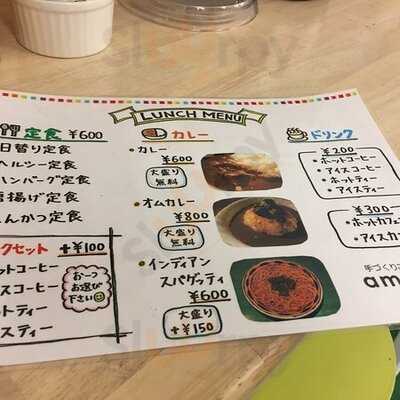 LUNCH MENU
定食 ¥600
日替り定食
ヘルシー定食
ハンバーグ定食
唐揚げ定食
とんかつ定食
クセット +¥100
ットコーヒー
スコーヒー
ットティー
スティー
お一つ
お選び
下さい
カレー
・カレー
¥600
大盛り
無料
・オムカレー
¥800
大盛り
無料
・インディアン
スパゲッティ
¥600
大盛り
+¥150
ドリンク
¥200
・ホットコーヒー
・アイスコーヒー
・ホットティー
・アイスティー
¥300
・ホットカフェ
・アイスカ
手づくり
am